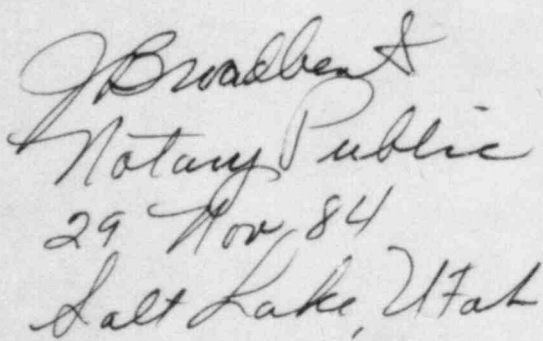 J Broadbent
Notary Public
29 Nov 84
Salt Lake, Utah